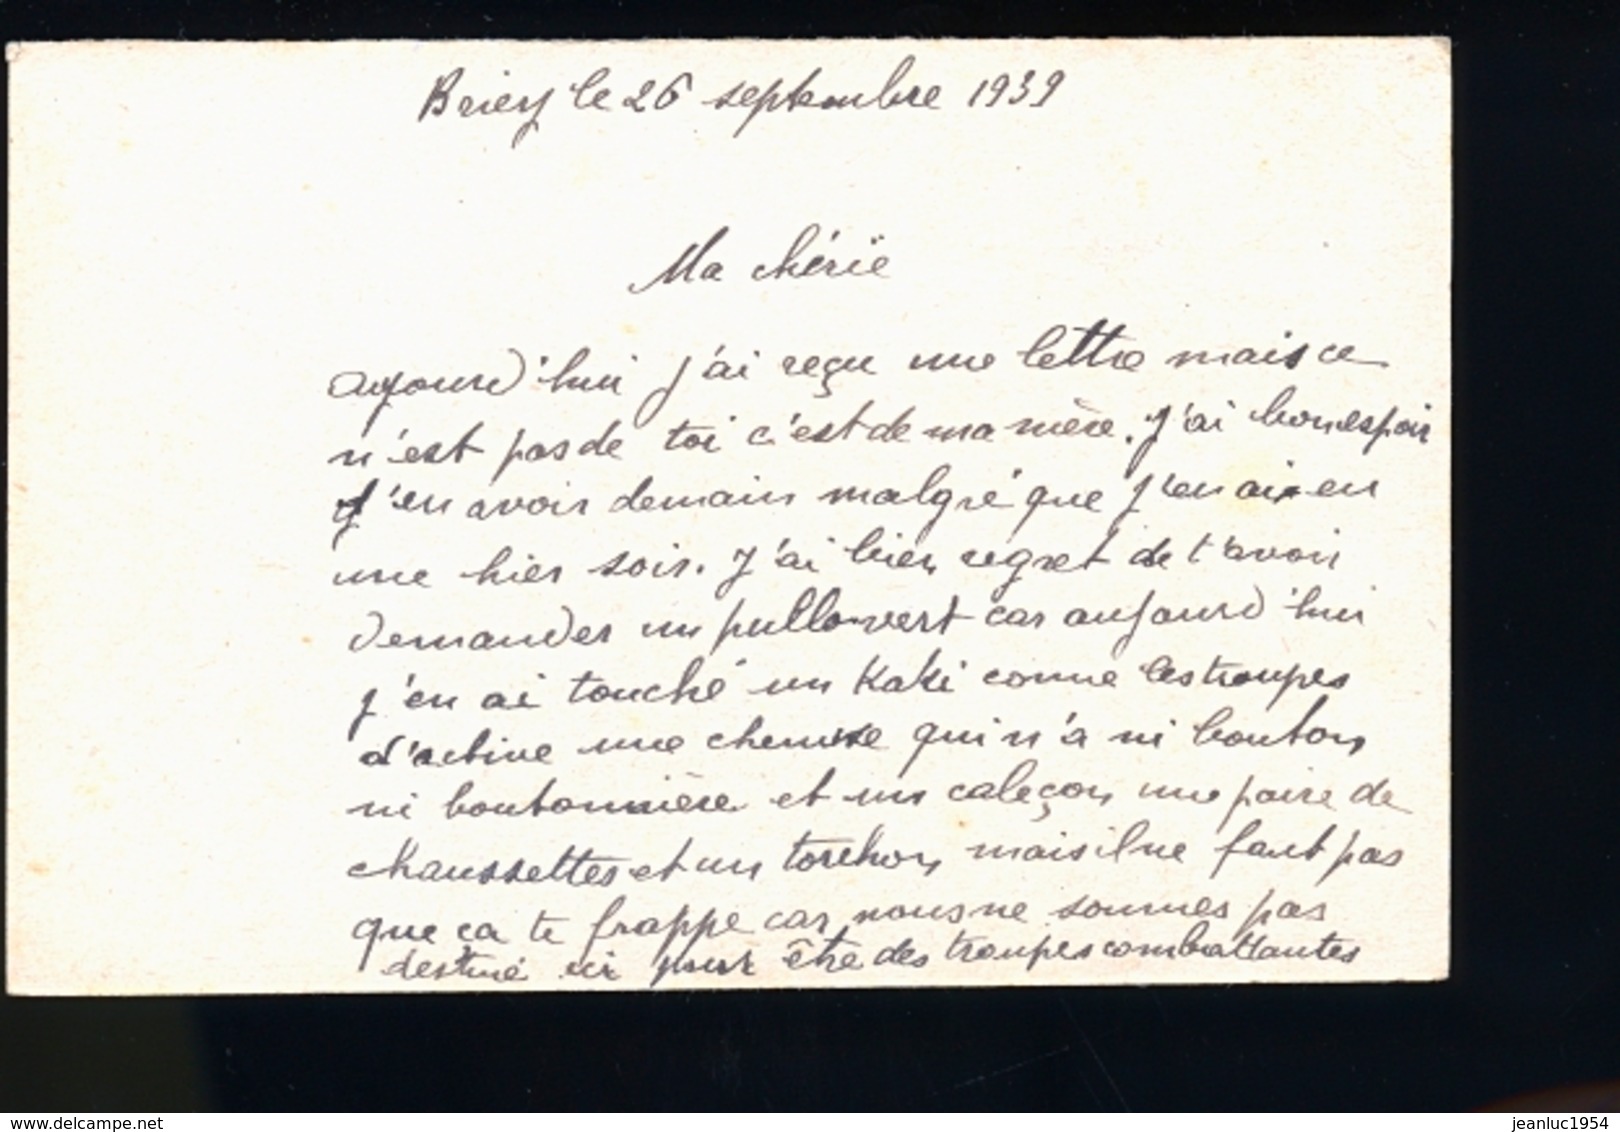 Briey le 26 septembre 1939
Ma chérië
aujourd'hui j'ai reçu une lettre mais ce
n'est pas de toi c'est de ma mère. J'ai bon espoir
d'en avoir demain malgré que j'en ai en
une hier soir. J'ai bien regret de t'avoir
demander un pullovert car aujourd'hui
j'en ai touché un Kaki comme les troupes
d'active une chemise qui n'a ni bouton
ni boutonnière et un caleçon une paire de
chaussettes et un torchon mais il ne faut pas
que ça te frappe car nous ne sommes pas
destiné ici pour être des troupes combattantes
delcampe.net
jeanluc1954